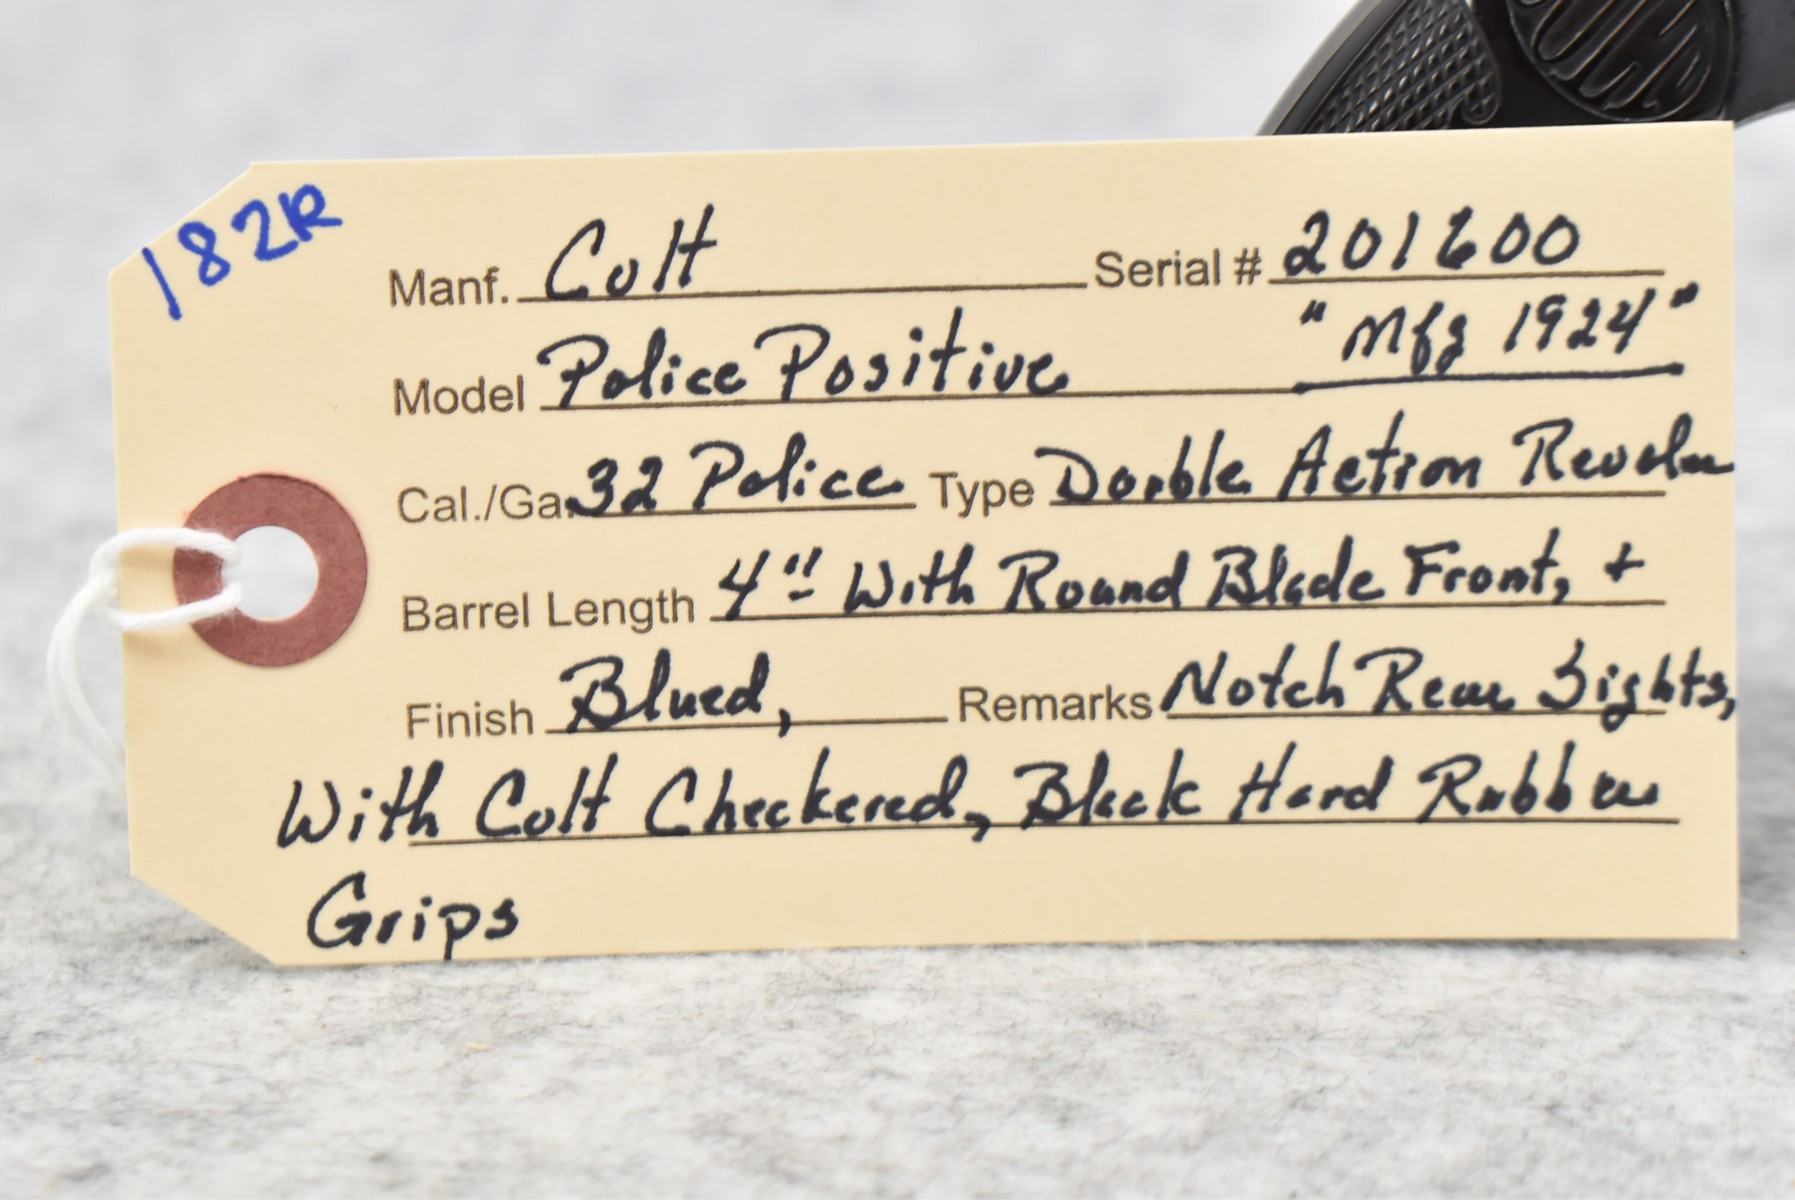 182R
Manf. Colt Serial # 201600
"Mfg 1924"
Model Police Positive
Cal./Ga. 32 Police Type Double Action Revolver
Barrel Length 4" With Round Blade Front, +
Finish Blued, Remarks Notch Rear Sights,
With Colt Checkered, Black Hard Rubber
Grips